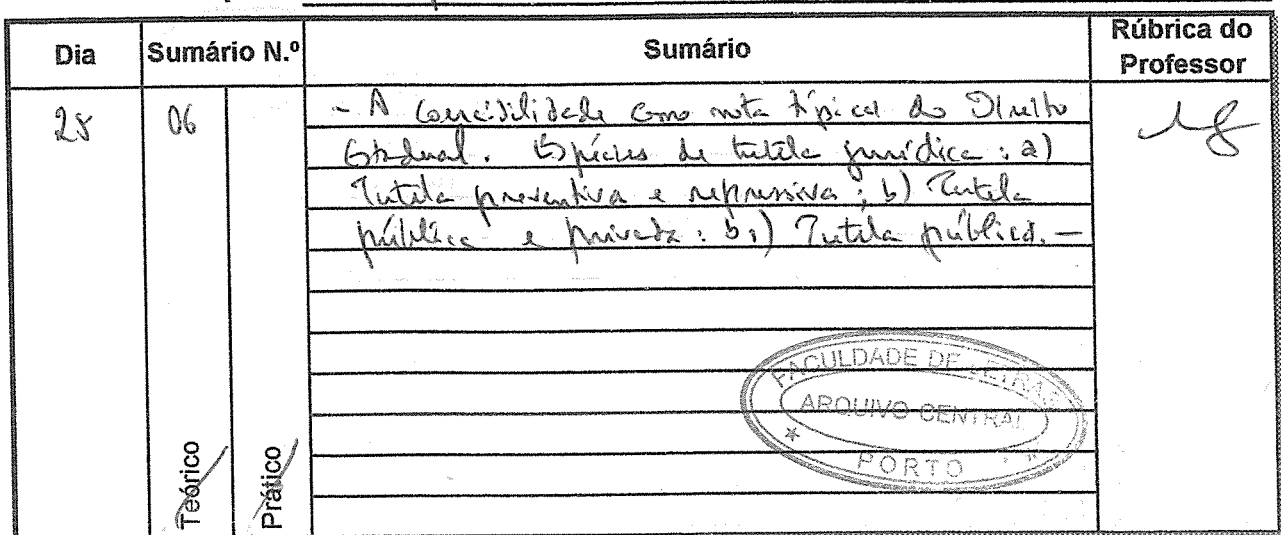 Dia Sumário N.º Sumário Rúbrica do Professor
28 06 - A coercibilidade como nota típica do Direito
Estadual. Espécies de tutela jurídica: a)
Tutela preventiva e repressiva; b) Tutela
pública e privada: b1) Tutela pública. —
Teórico Prático
FACULDADE DE LETRAS
ARQUIVO CENTRAL
PORTO